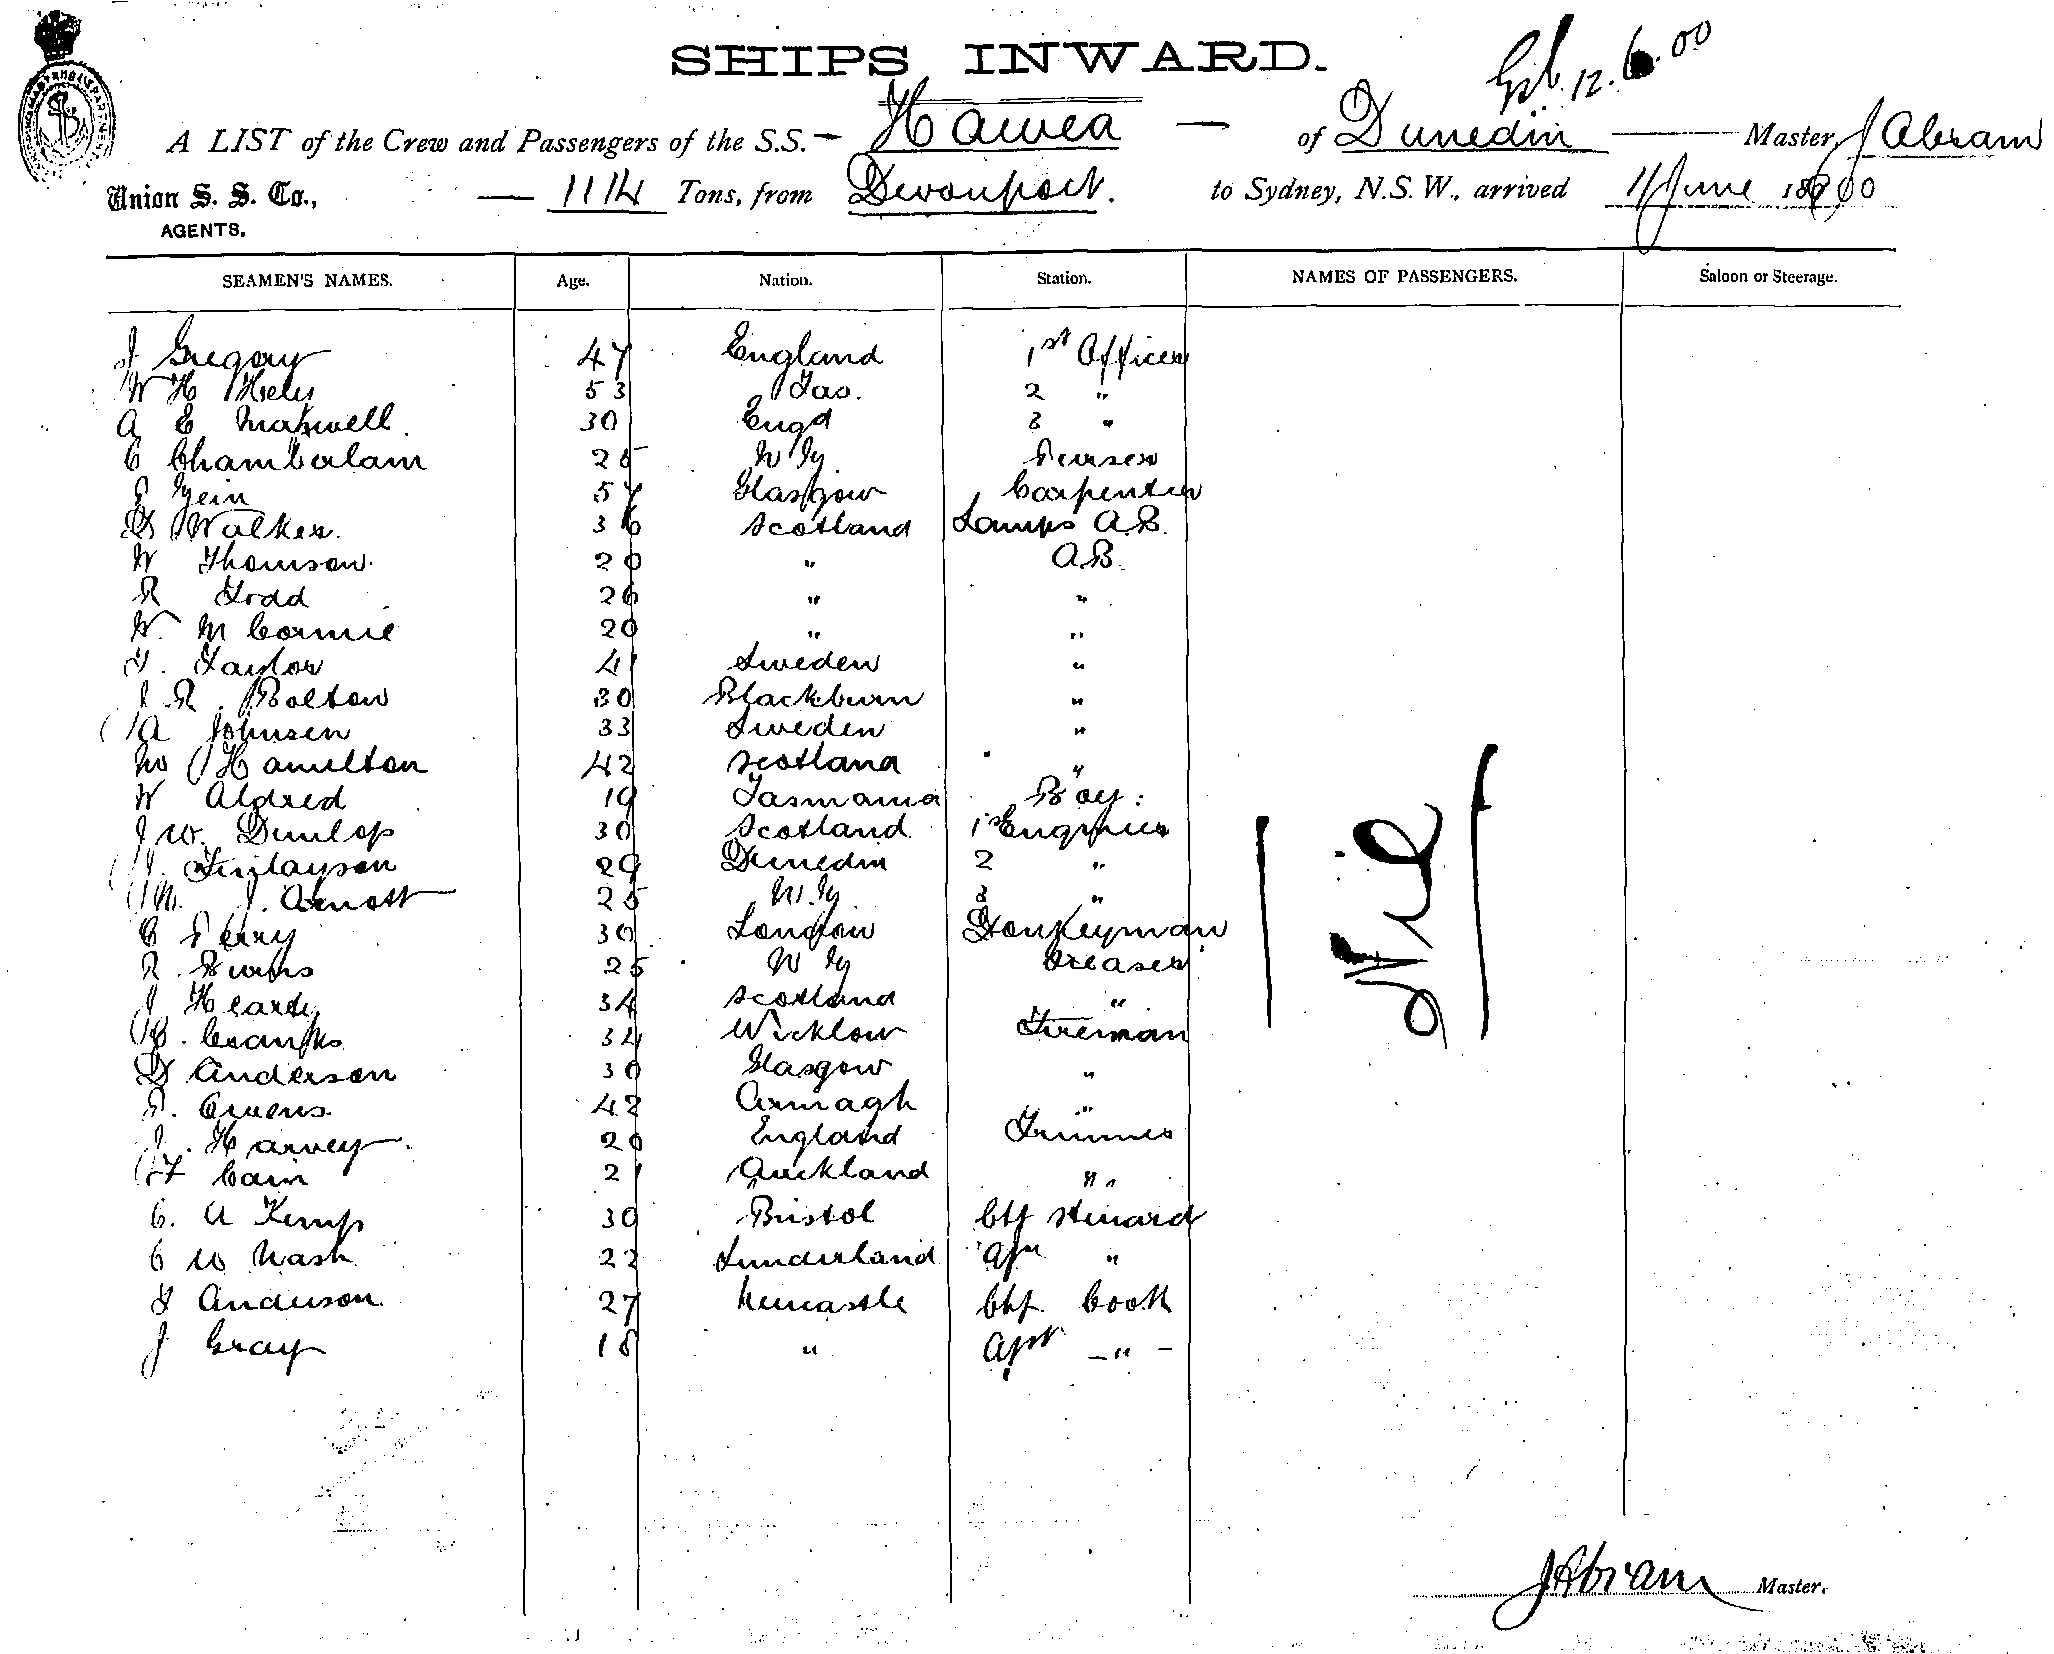 SHIPS INWARD.
12.6.00
A LIST of the Crew and Passengers of the S.S. — Hawea — of Dunedin — Master, J Abram
Union S. S. Co., — 1114 Tons, from Devonport. to Sydney, N.S.W., arrived 11 June 1900
AGENTS.
SEAMEN'S NAMES. Age. Nation. Station. NAMES OF PASSENGERS. Saloon or Steerage.
J Gregory 47 England 1st Officer
W H 53 Tas. 2 "
A E Maxwell. 30 Engd 3 "
C Chamberlain 25 N Z Purser
57 Glasgow Carpenter
Walker. 36 Scotland Lamps A.B.
W Thomson. 20 " A.B.
R Todd 26 " "
W. McCormie 20 " "
T. Taylor 41 Sweden "
J R. Bolton 30 Blackburn "
A Johnsen 33 Sweden "
W Hamilton 42 Scotland "
W Aldred 19 Tasmania Boy.
J W. Dunlop 30 Scotland 1st Engineer
J. Finlayson 29 Dunedin 2 "
J. Arnott 25 N.Z 3 "
C Perry 30 London Donkeyman
R. Burns 25 N Z Greaser
J 34 Scotland "
34 Wicklow Fireman
D Anderson 30 Glasgow "
P. Owens. 42 Armagh "
J. Harvey. 20 England Trimmer
Cain 21 Auckland "
C. A Kemp 30 Bristol Chf Steward
C W Nash 22 Sunderland "
T Anderson 27 Newcastle Chf. Cook
J Gray 18 " — " —
Nil
J Abram Master.